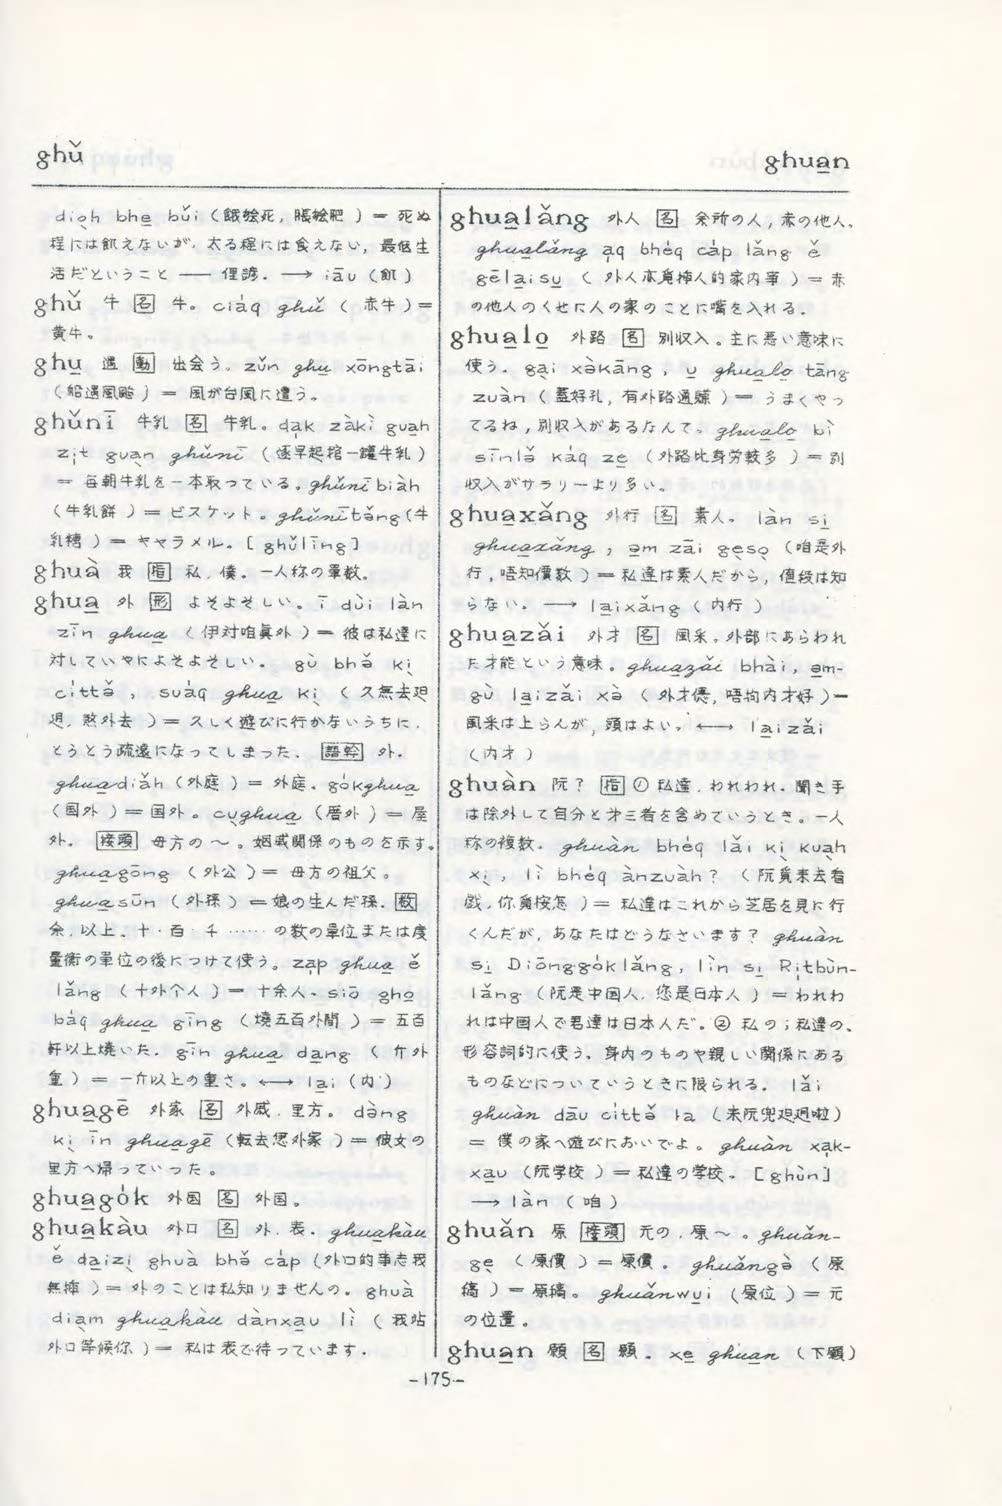 ghǔ
ghua̱n
dio̱h bhe̱ bǔi (餓繪死, 脹繪肥) = 死ぬ
程には飢えないが, 太る程には食えない, 最低生
活だということ —— 俚諺. ⟶ iāu (飢)
ghǔ 牛 [名] 牛。ciȧq ghǔ (赤牛) =
黄牛。
ghu̱ 遇 [動] 出会う。zǔn ghu̱ xōngtāi
(船遇風颱) = 風が台風に遭う。
ghǔnī 牛乳 [名] 牛乳。da̱k zàkì gua̱h
zi̱t gua̱n ghǔnī (逐早起捾一罐牛乳)
= 毎朝牛乳を一本取っている。ghǔnībiàh
(牛乳餅) = ビスケット。ghǔnītǒng (牛
乳糖) = キャラメル。[ghǔlīng]
ghuà 我 [指] 私. 僕. 一人称の單数.
ghua̱ 外 [形] よそよそしい。ī dùi làn
zīn ghua̱ (伊対咱眞外) = 彼は私達に
対していやによそよそしい. gù bhǒ ki̱
cìttǒ, suȧq ghua̱ ki̱ (久無去𨑨
迌, 煞外去) = 久しく遊びに行かないうちに,
とうとう疏遠になってしまった. [語幹] 外.
ghua̱diǎh (外庭) = 外庭. gȯkghua̱
(国外) = 国外。cu̱ghua̱ (厝外) = 屋
外. [接頭] 母方の〜。姻戚関係のものを示す。
ghua̱gōng (外公) = 母方の祖父。
ghua̱sūn (外孫) = 娘の生んだ孫. [数]
余. 以上、十・百・千……の数の單位または度
量衡の單位の後につけて使う。za̱p ghua̱ ě
lǎng (十外个人) = 十余人. siō gho̱
bȧq ghua̱ gīng (燒五百外間) = 五百
軒以上焼いた. gīn ghua̱ da̱ng (斤外
重) = 一斤以上の重さ。⟷ la̱i (内)
ghua̱gē 外家 [名] 外戚. 里方。dàng
ki̱ īn ghua̱gē (転去𪜶外家) = 彼女の
里方へ帰っていった。
ghua̱gȯk 外国 [名] 外国。
ghua̱kàu 外口 [名] 外. 表. ghua̱kàu
ě da̱izi̱ ghuà bhǒ cȧp (外口的事志我
無揷) = 外のことは私知りませんの。ghuà
dia̱m ghua̱kàu dànxa̱u lì (我站
外口等候你) = 私は表で待っています.
ghua̱lǎng 外人 [名] 余所の人, 赤の他人.
ghua̱lǎng a̱q bhėq cȧp lǎng ě
gēla̱isu̱ (外人亦覓揷人的家内事) = 赤
の他人のくせに人の家のことに嘴を入れる.
ghua̱lo̱ 外路 [名] 別収入。主に悪い意味に
使う。ga̱i xòkāng, u̱ ghua̱lo̱ tāng
zuàn (蓋好孔, 有外路通賺) = うまくやっ
てるね, 別収入があるなんて。ghua̱lo̱ bì
sīnlǒ kȧq ze̱ (外路比身労較多) = 別
収入がサラリーより多い.
ghua̱xǎng 外行 [名] 素人. làn si̱
ghua̱xǎng, a̱m zāi ge̱so̱ (咱是外
行, 唔知價数) = 私達は素人だから, 値段は知
らない. ⟶ la̱ixǎng (内行)
ghua̱zǎi 外才 [名] 風采。外部にあらわれ
た才能という意味。ghua̱zǎi bhài, a̱m-
gù la̱izǎi xò (外才僫, 唔拘内才好) =
風采は上らんが, 頭はよい. ⟷ la̱izǎi
(内才)
ghuàn 阮? [指] ① 私達. われわれ. 聞き手
は除外して自分と才三者を含めていうとき. 一人
称の複数. ghuàn bhėq lǎi ki̱ kua̱h
xi̱, lì bhėq ànzuàh? (阮覓来去看
戯, 你覓按怎) = 私達はこれから芝居を見に行
くんだが, あなたはどうなさいます? ghuàn
si̱ Diōnggȯklǎng, lìn si̱ Ri̱tbùn-
lǎng (阮是中国人, 您是日本人) = われわ
れは中国人で君達は日本人だ. ② 私の; 私達の,
形容詞的に使う. 身内のものや親しい関係にある
ものなどについていうときに限られる. lǎi
ghuàn dāu cìttǒ la (来阮兜𨑨迌啦)
= 僕の家へ遊びにおいでよ。ghuàn xa̱k-
xa̱u (阮学校) = 私達の学校. [ghùn]
⟶ làn (咱)
ghuǎn 原 [接頭] 元の. 原〜。ghuǎn-
ge̱ (原價) = 原價. ghuǎngò (原
稿) = 原稿. ghuǎnwu̱i (原位) = 元
の位置.
ghua̱n 願 [名] 願. xe̱ ghua̱n (下願)
-175-